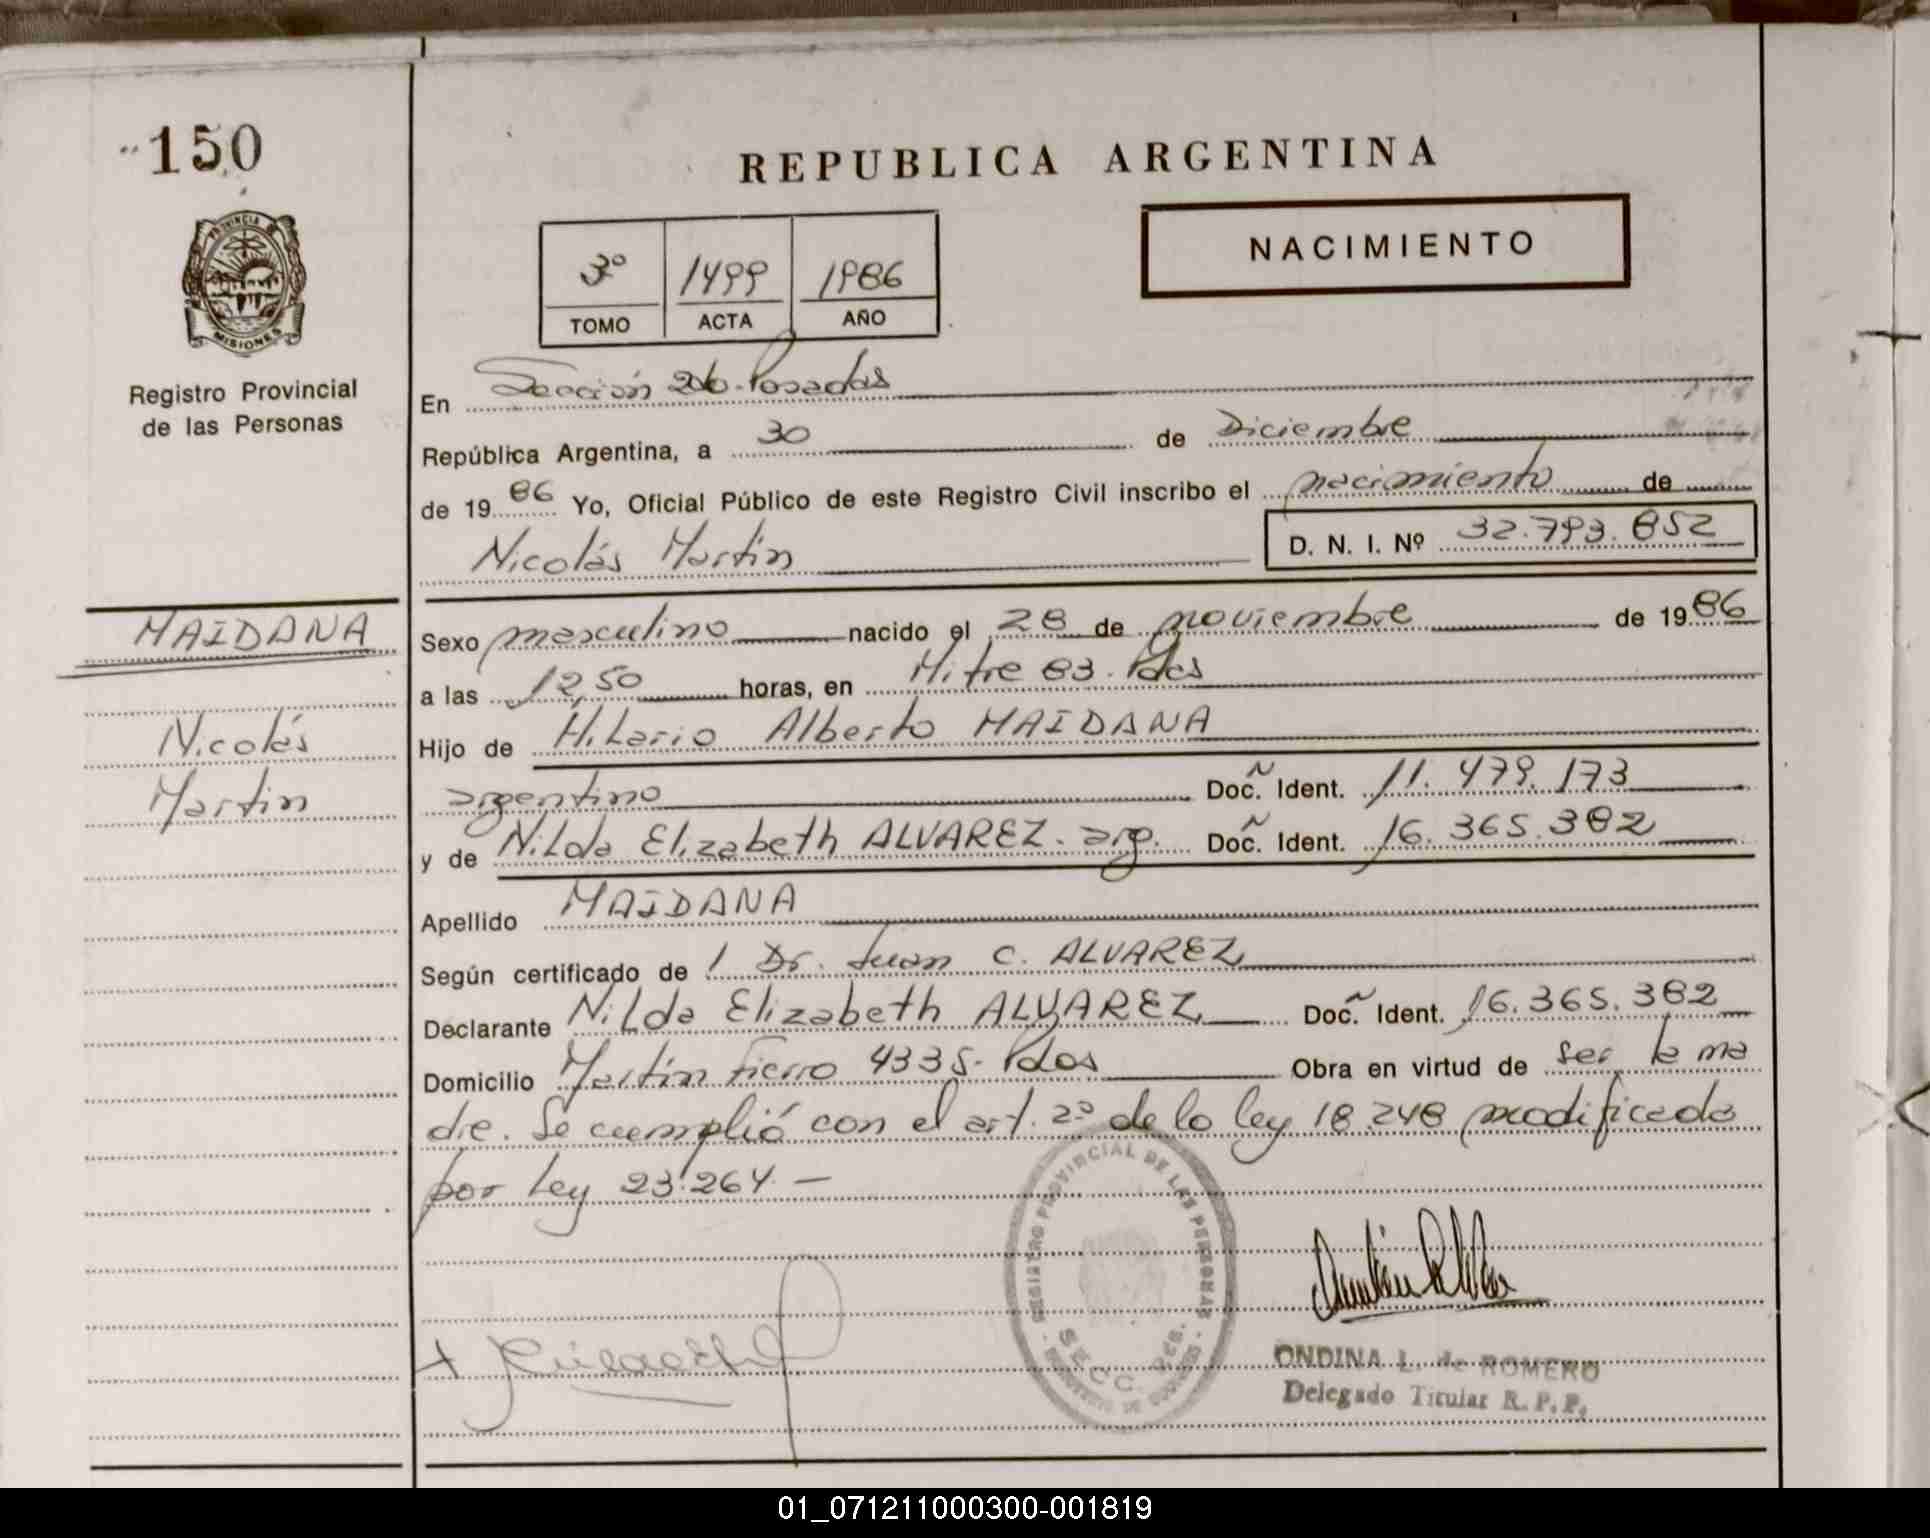 150
PROVINCIA DE
MISIONES
Registro Provincial
de las Personas
MAIDANA
Nicolás
Martín
REPUBLICA ARGENTINA
NACIMIENTO
3º 1499 1986
TOMO ACTA AÑO
En Sección 2da. Posadas
República Argentina, a 30 de Diciembre
de 1986 Yo, Oficial Público de este Registro Civil inscribo el nacimiento de
Nicolás Martín D. N. I. Nº 32.793.852
Sexo masculino nacido el 28 de noviembre de 1986
a las 12,50 horas, en Mitre 83. Pdas
Hijo de Hilario Alberto MAIDANA
argentino Doc. Ident. 11.479.173
y de Nilda Elizabeth ALVAREZ. arg. Doc. Ident. 16.365.382
Apellido MAIDANA
Según certificado de / Dr. Juan C. ALVAREZ
Declarante Nilda Elizabeth ALVAREZ Doc. Ident. 16.365.382
Domicilio Martín Fierro 4335. Pdas Obra en virtud de ser la ma
dre. Se cumplió con el art. 2º de la ley 18.248 modificada
por ley 23.264. —
REGISTRO PROVINCIAL DE LAS PERSONAS
SECC.
ONDINA L. de ROMERO
Delegado Titular R. P. P.
01_071211000300-001819